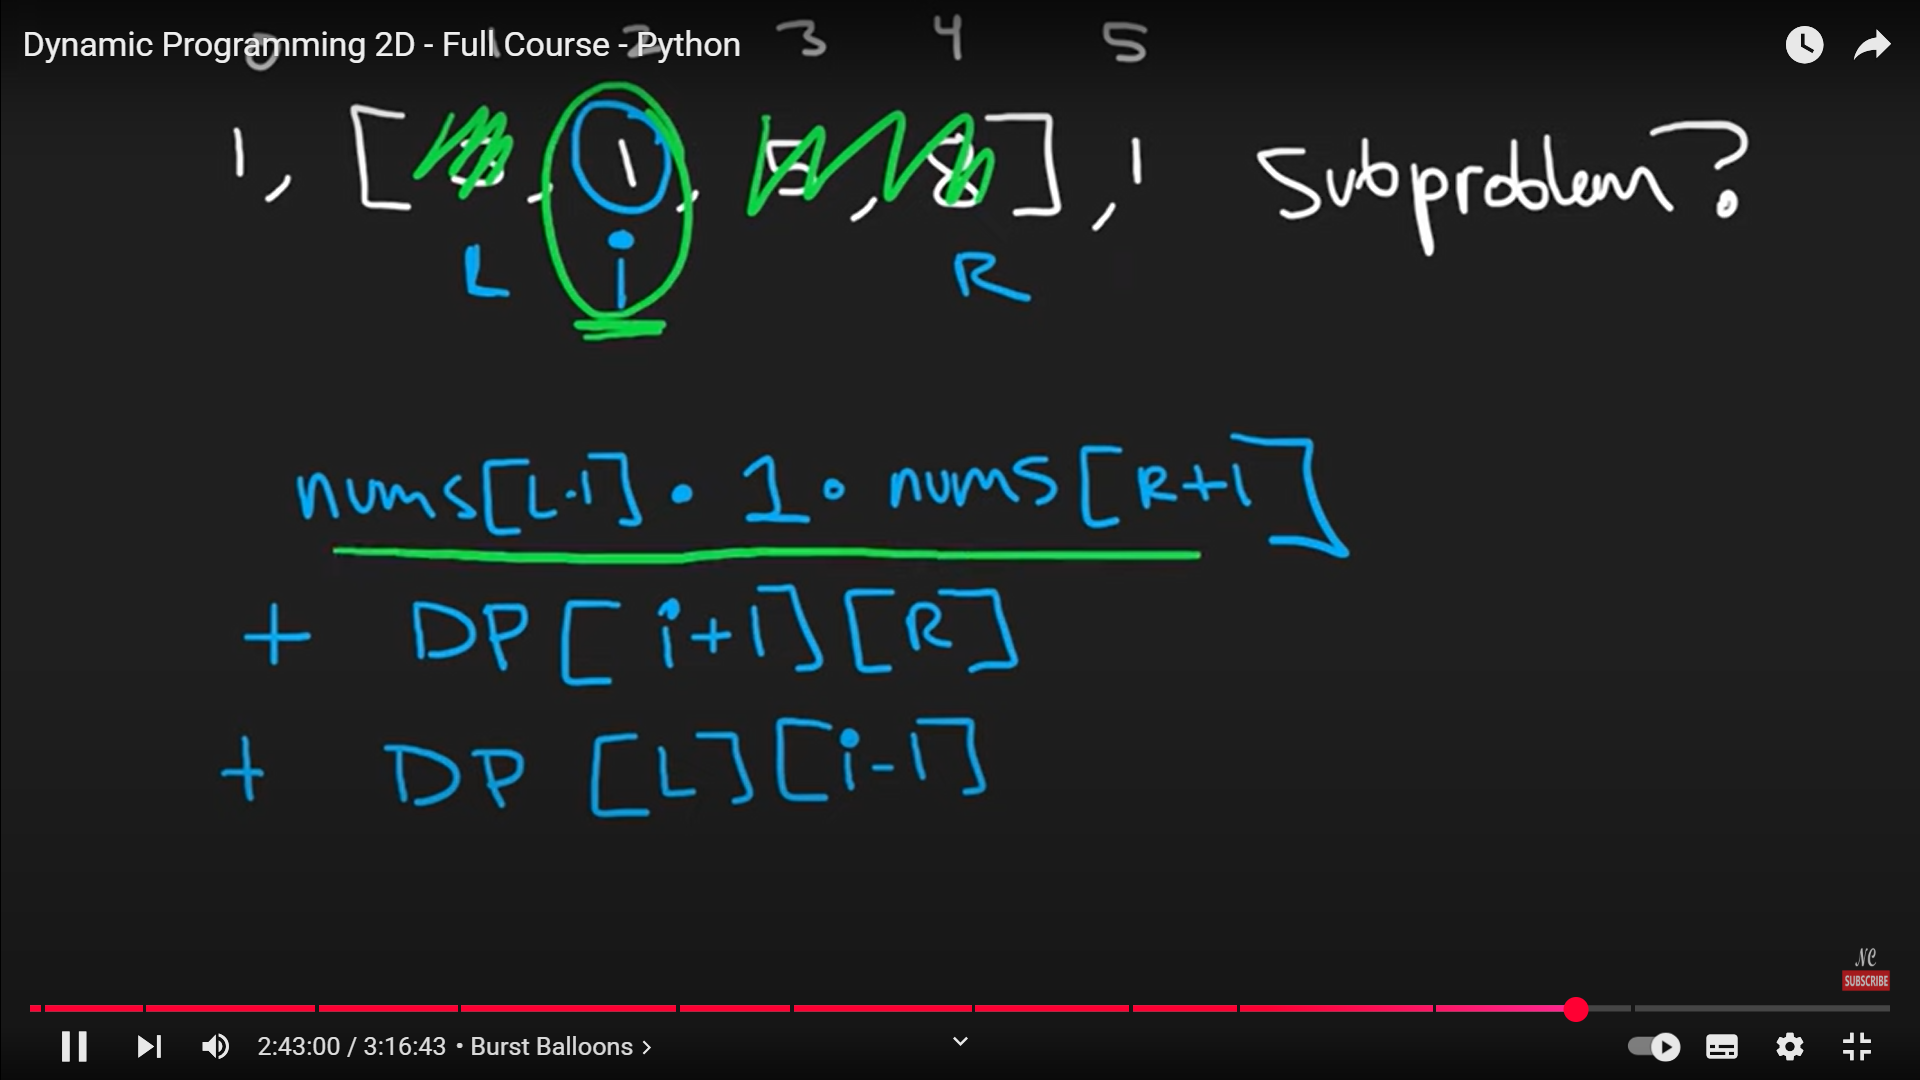 Dynamic Programming 2D - Full Course - Python
0 1 2 3 4 5
1, [ 3, 1, 5, 8 ], 1 Subproblem?
L i R
nums[L-1] • 1 • nums[R+1]
+ DP[i+1][R]
+ DP[L][i-1]
NC
SUBSCRIBE
2:43:00 / 3:16:43 • Burst Balloons >